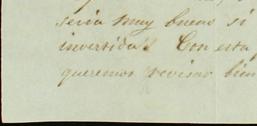 seria muy bueno si
invertida's Con esta
queremos revisar bien